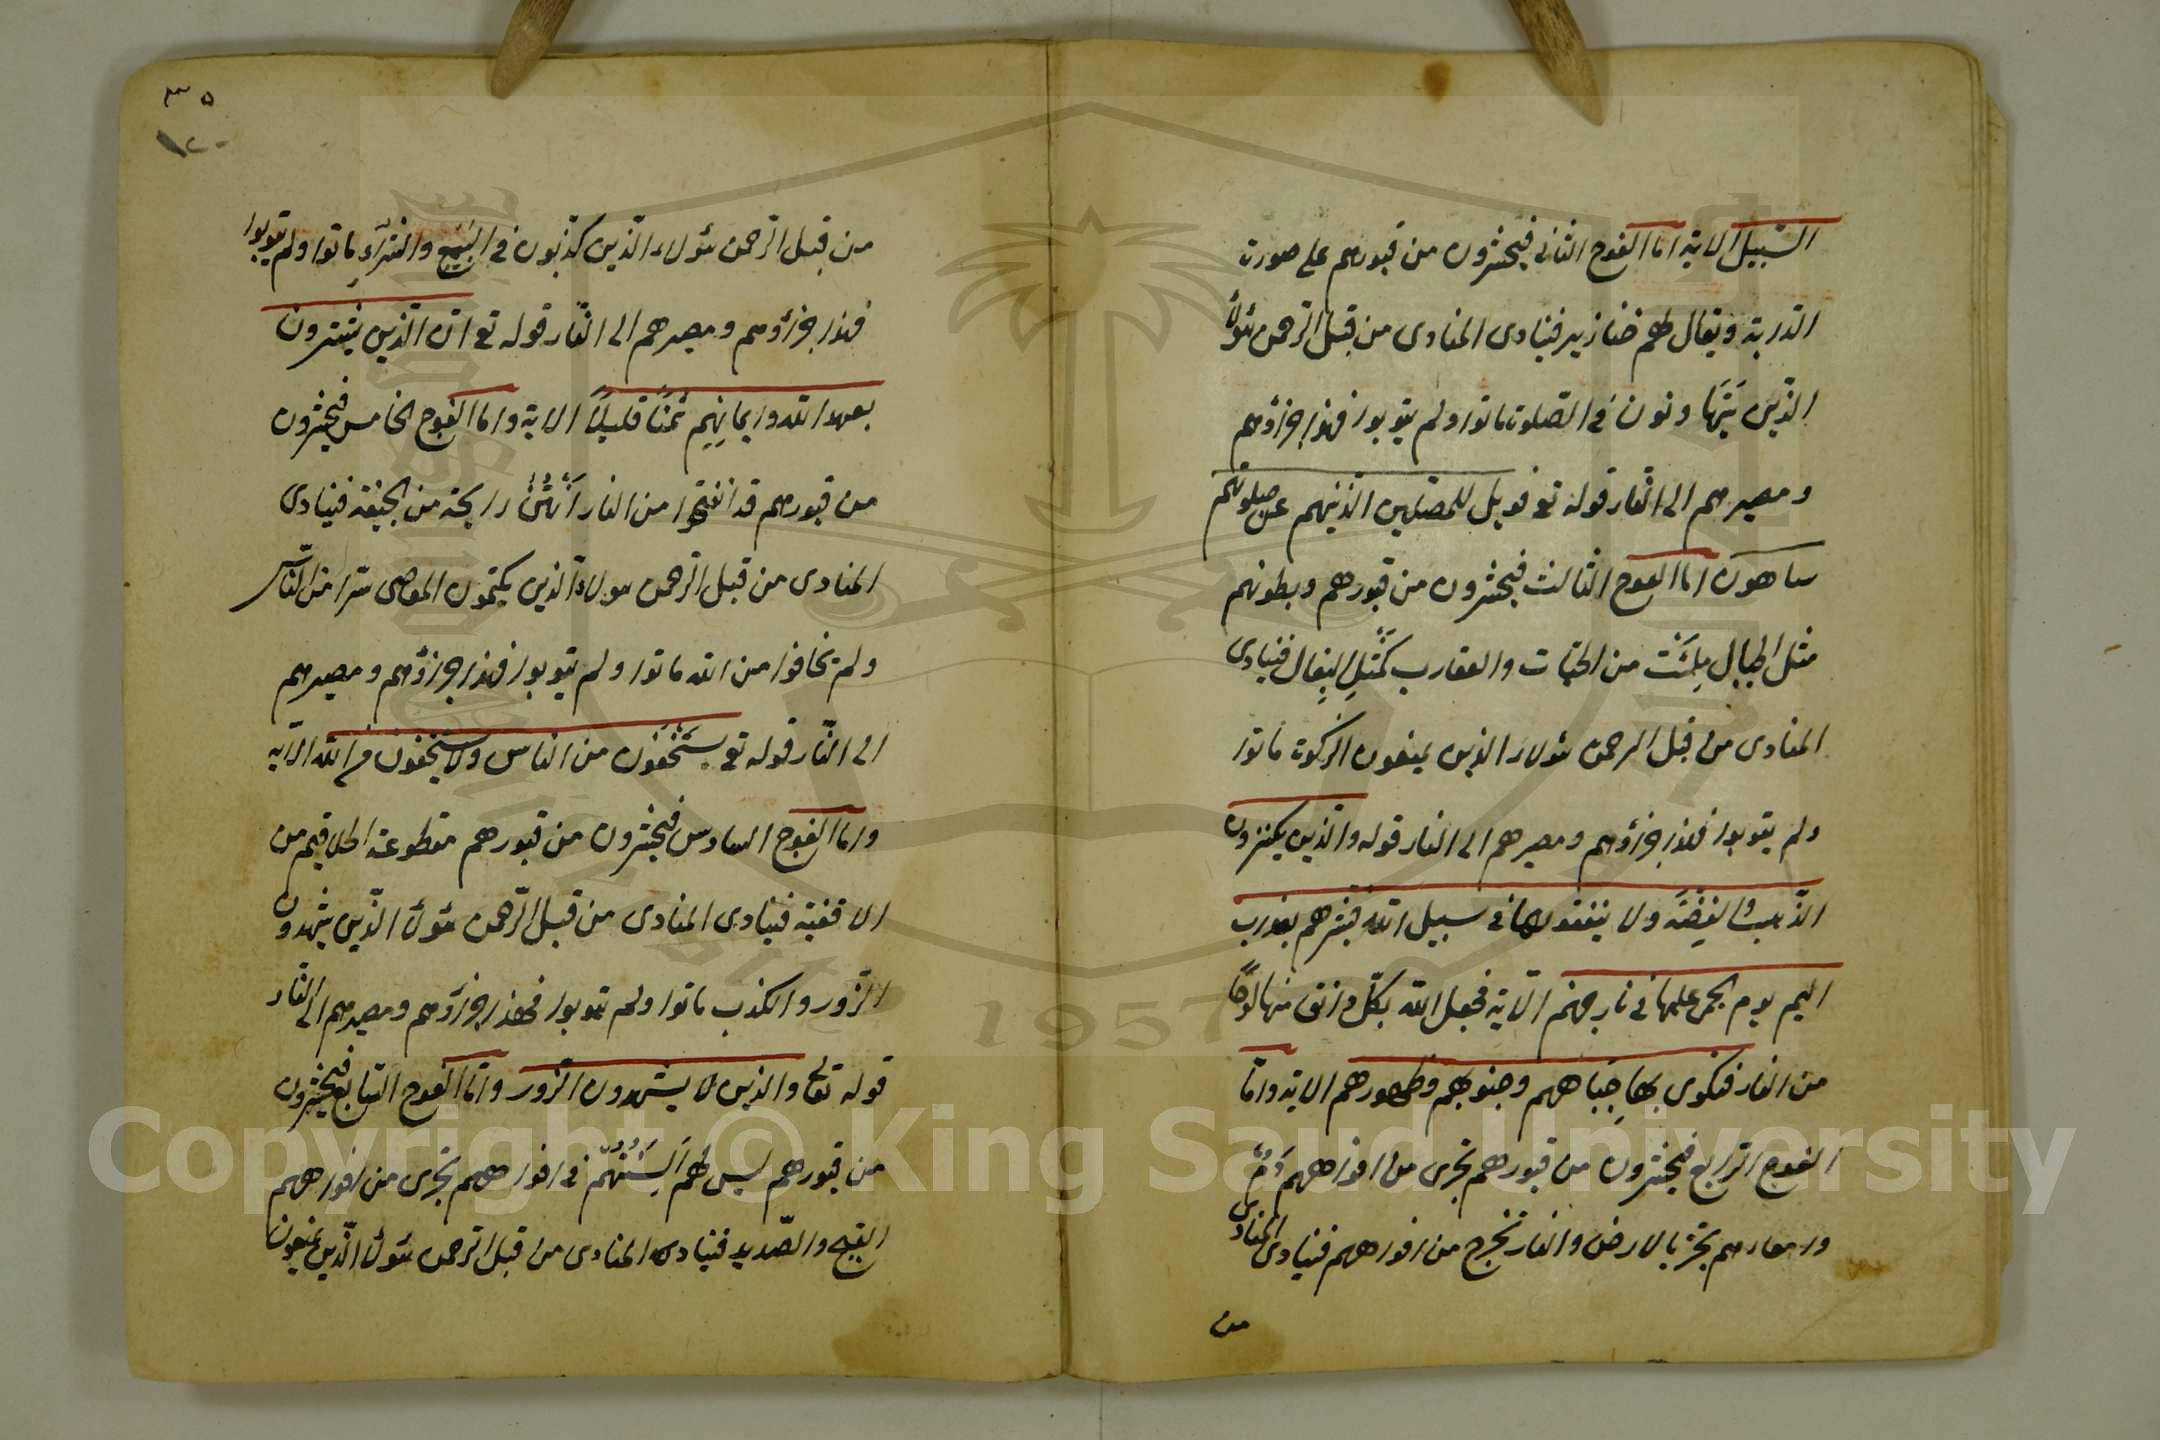 السبيل الاية اما الفوج الثانى فيحشرون من قبورهم على صورت
الدربة ويقال لهم خنازير فينادى المنادى من قبل الرحمن هؤلاء
الذين يتهاونون فى الصلوت ماتوا ولم يتوبوا فهذا جزاؤهم
ومصيرهم الى النار قوله تع فويل للمصلين الذينهم عن صلوتهم
ساهون اما الفوج الثالث فيحشرون من قبورهم وبطونهم
مثل الجبال ملئت من الحيات والعقارب كمثل البغال فينادى
المنادى من قبل الرحمن هؤلاء الذين يمنعون الزكوت ماتوا
ولم يتوبوا فهذا جزاؤهم ومصيرهم الى النار قوله والذين يكنزون
الذهب والفضة ولا ينفقونها فى سبيل الله فبشرهم بعذاب
اليم يوم يحمى عليها فى نار جهنم الاية فجعل الله بكل دانق منها لوحا
من النار فتكوى بها جباههم وجنوبهم وظهورهم الاية واما
الفوج الرابع فيحشرون من قبورهم تجرى من افواههم دم
وامعارهم تجر بالارض والنار تخرج من افواههم فينادى المنادى
من
٣٥
١٢٠
من قبل الرحمن هؤلاء الذين كذبون فى البيع والشراء ماتوا ولم يتوبوا
فهذا جزاؤهم ومصيرهم الى النار قوله تع ان الذين يشترون
بعهد الله وايمانهم ثمنا قليلا الاية واما الفوج الخامس فيحشرون
من قبورهم قد انفتحوا من النار انتن رايحة من الجيفة فينادى
المنادى من قبل الرحمن هولاء الذين يكتمون المعاصى سرا من الناس
ولم يخافوا من الله ماتوا ولم يتوبوا فهذا جزاؤهم ومصيرهم
الى النار قوله تع يستخفون من الناس ولا يستخفون من الله الاية
واما الفوج السادس فيحشرون من قبورهم مقطوعة الحلاقيم من
الاقفية فينادى المنادى من قبل الرحمن هؤلاء الذين يشهدون
الزور والكذب ماتوا ولم يتوبوا فهذا جزاؤهم ومصيرهم الى النار
قوله تعالى والذين لا يشهدون الزور واما الفوج السابع فيحشرون
من قبورهم ليس لهم السنتهم فى افواههم تجرى من افواههم
القيح والصديد فينادى المنادى من قبل الرحمن هؤلاء الذين يمنعون
Copyright © King Saud University
1957